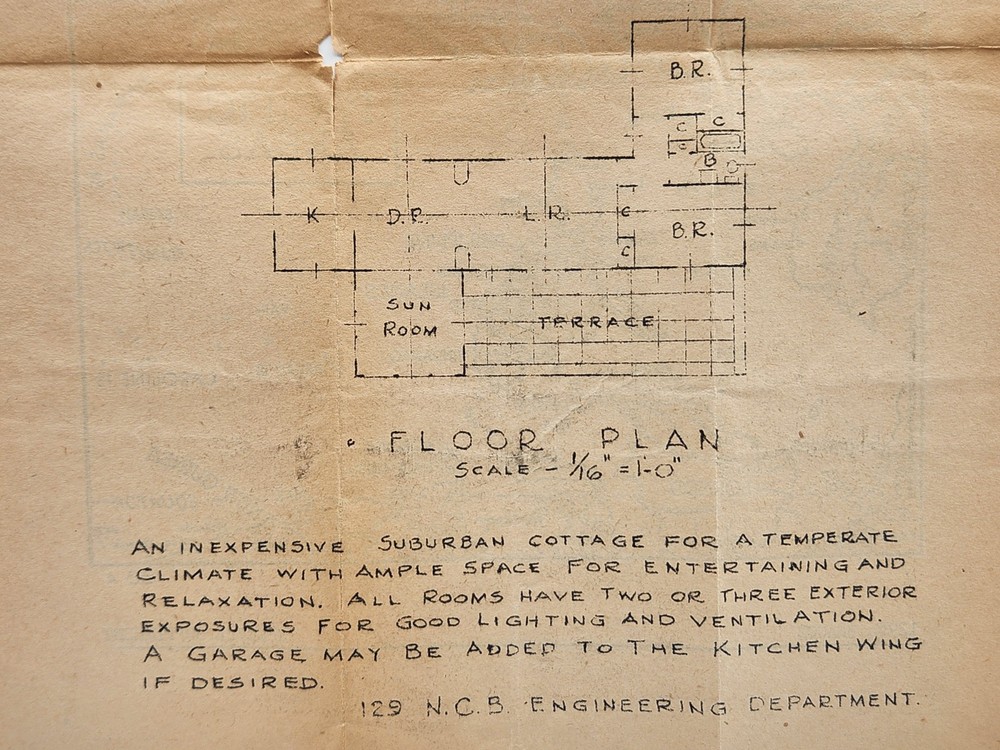 B.R.
C
C
C
B
K
D.R.
L.R.
C
B.R.
C
SUN
ROOM
TERRACE
FLOOR PLAN
SCALE - 1/16" = 1'-0"
AN INEXPENSIVE SUBURBAN COTTAGE FOR A TEMPERATE
CLIMATE WITH AMPLE SPACE FOR ENTERTAINING AND
RELAXATION. ALL ROOMS HAVE TWO OR THREE EXTERIOR
EXPOSURES FOR GOOD LIGHTING AND VENTILATION.
A GARAGE MAY BE ADDED TO THE KITCHEN WING
IF DESIRED.
129 N.C.B. ENGINEERING DEPARTMENT.